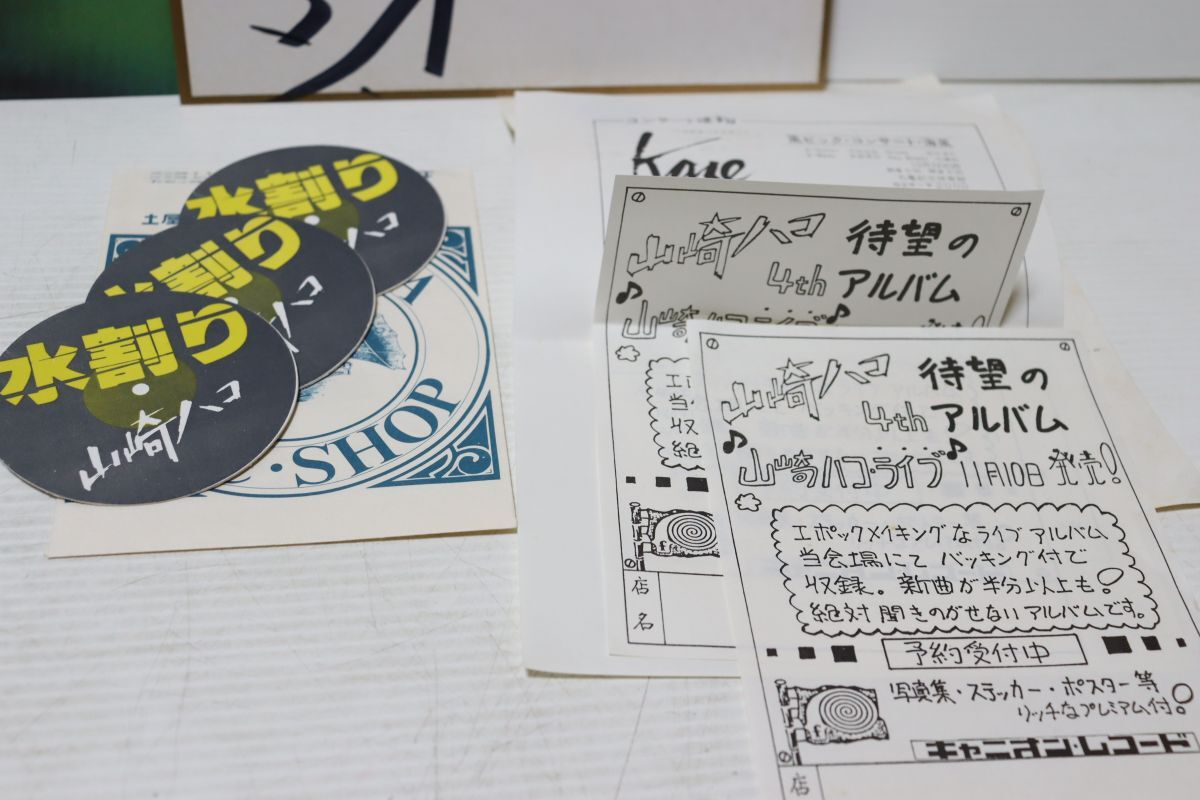 水割り
水割り
山崎ハコ
水割り
山崎ハコ
土屋
SHOP
Kaze
山崎ハコ 待望の
4th アルバム
山崎ハコ・ライブ
店
名
山崎ハコ 待望の
4th アルバム
山崎ハコ・ライブ 11月10日 発売!
エポックメイキングなライブアルバム
当会場にて バッキング付で
収録。新曲が半分以上も!
絶対聞きのがせないアルバムです。
予約受付中
写真集・ステッカー・ポスター等
リッチなプレミアム付!
キャニオン・レコード
店